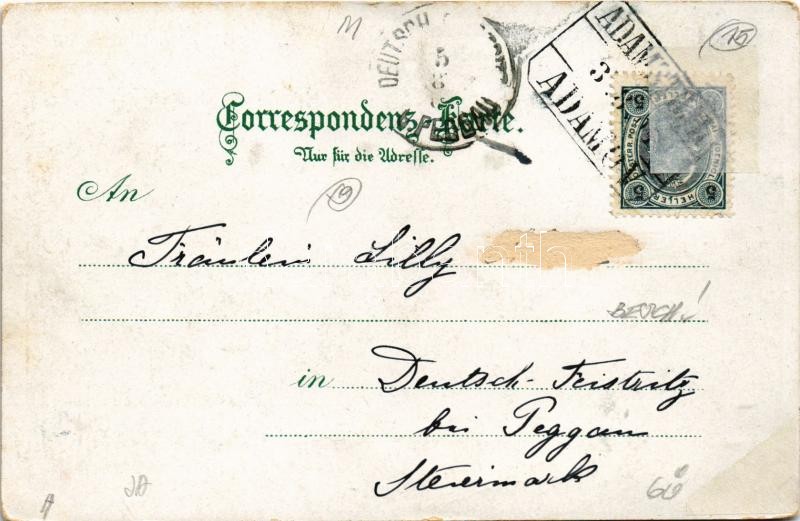 M
15
DEUTSCH
5
PEGGAU
ADAMSTHAL
3
ADAMOV
5 5
HELLER
5 5
Correspondenz-Karte.
Nur für die Adresse.
19
An
Fräulein Lilly
BESCH!
in Deutsch-Feistritz
bei Peggau
Steiermark
A
60